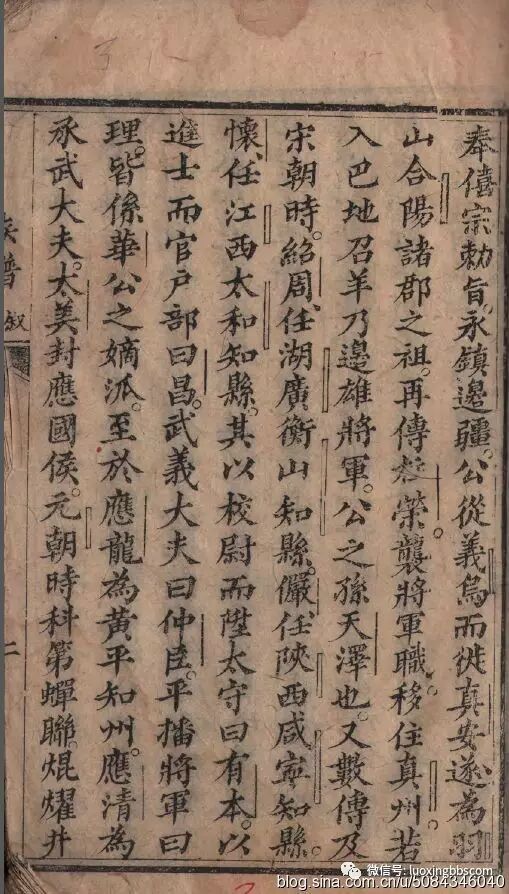 奉僖宗勅旨永鎮邊疆公從義烏而徙真安遂為羽
山合陽諸郡之祖再傳榮襲將軍職移住真州若
入巴地召羊乃邊雄將軍公之孫天澤也又數傳及
宋朝時紹周任湖廣衡山知縣儼任陝西咸寧知縣
懷任江西太和知縣其以校尉而陞太守曰有本以
進士而官户部曰昌武義大夫曰仲臣平播將軍曰
理皆係華公之嫡派至於應龍為黃平知州應清為
承武大夫太美封應國侯元朝時科第蟬聯焜耀井
族譜
叙
二
微信号: luoxingbbscom
blog.sina.com.cn/u/5084346040